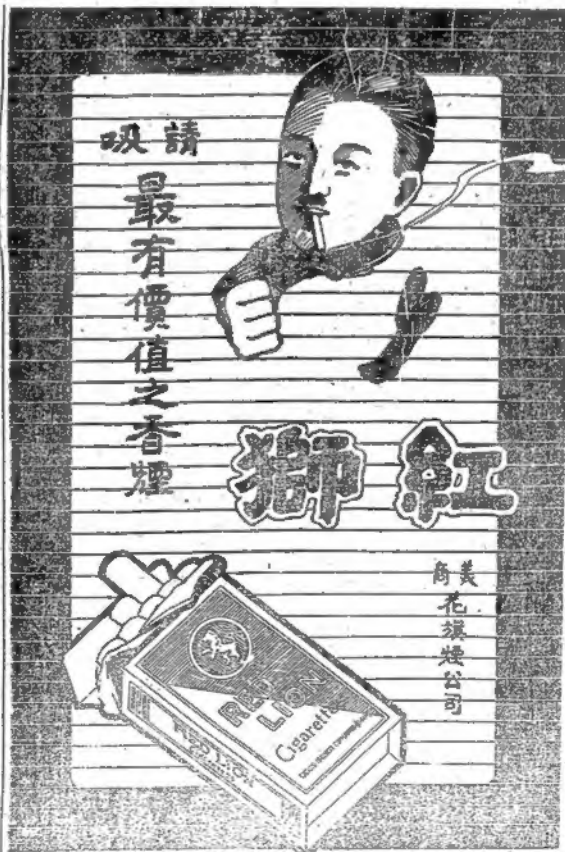 請吸
最有價值之香煙
紅獅
美商
花旗煙公司
RED
LION
Cigarettes
RED LION